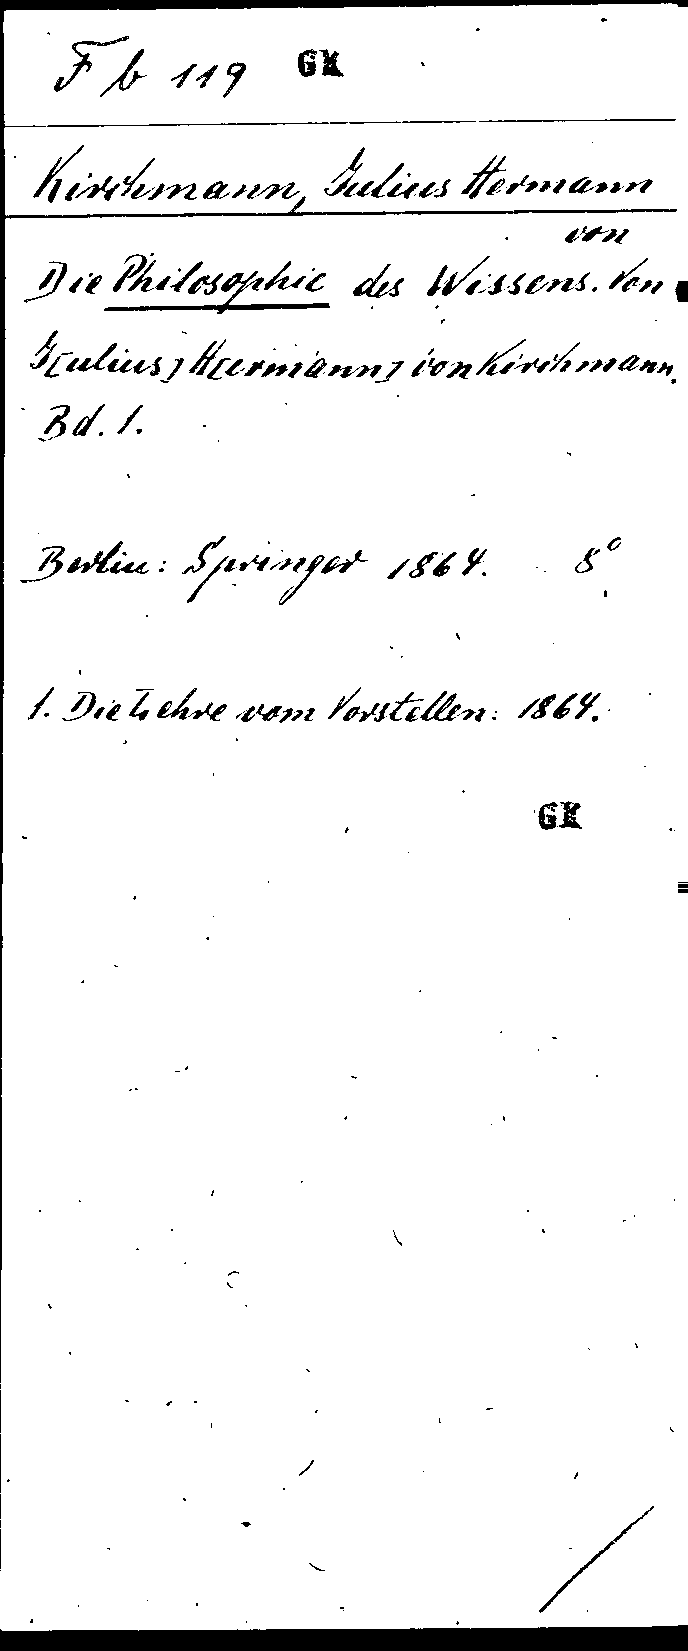 F b 119 GK
Kirchmann, Julius Hermann
von
Die Philosophie des Wissens. Von
J[ulius] H[ermann] von Kirchmann.
Bd. 1.
Berlin: Springer 1864. 8°
1. Die Lehre vom Vorstellen. 1864.
GK